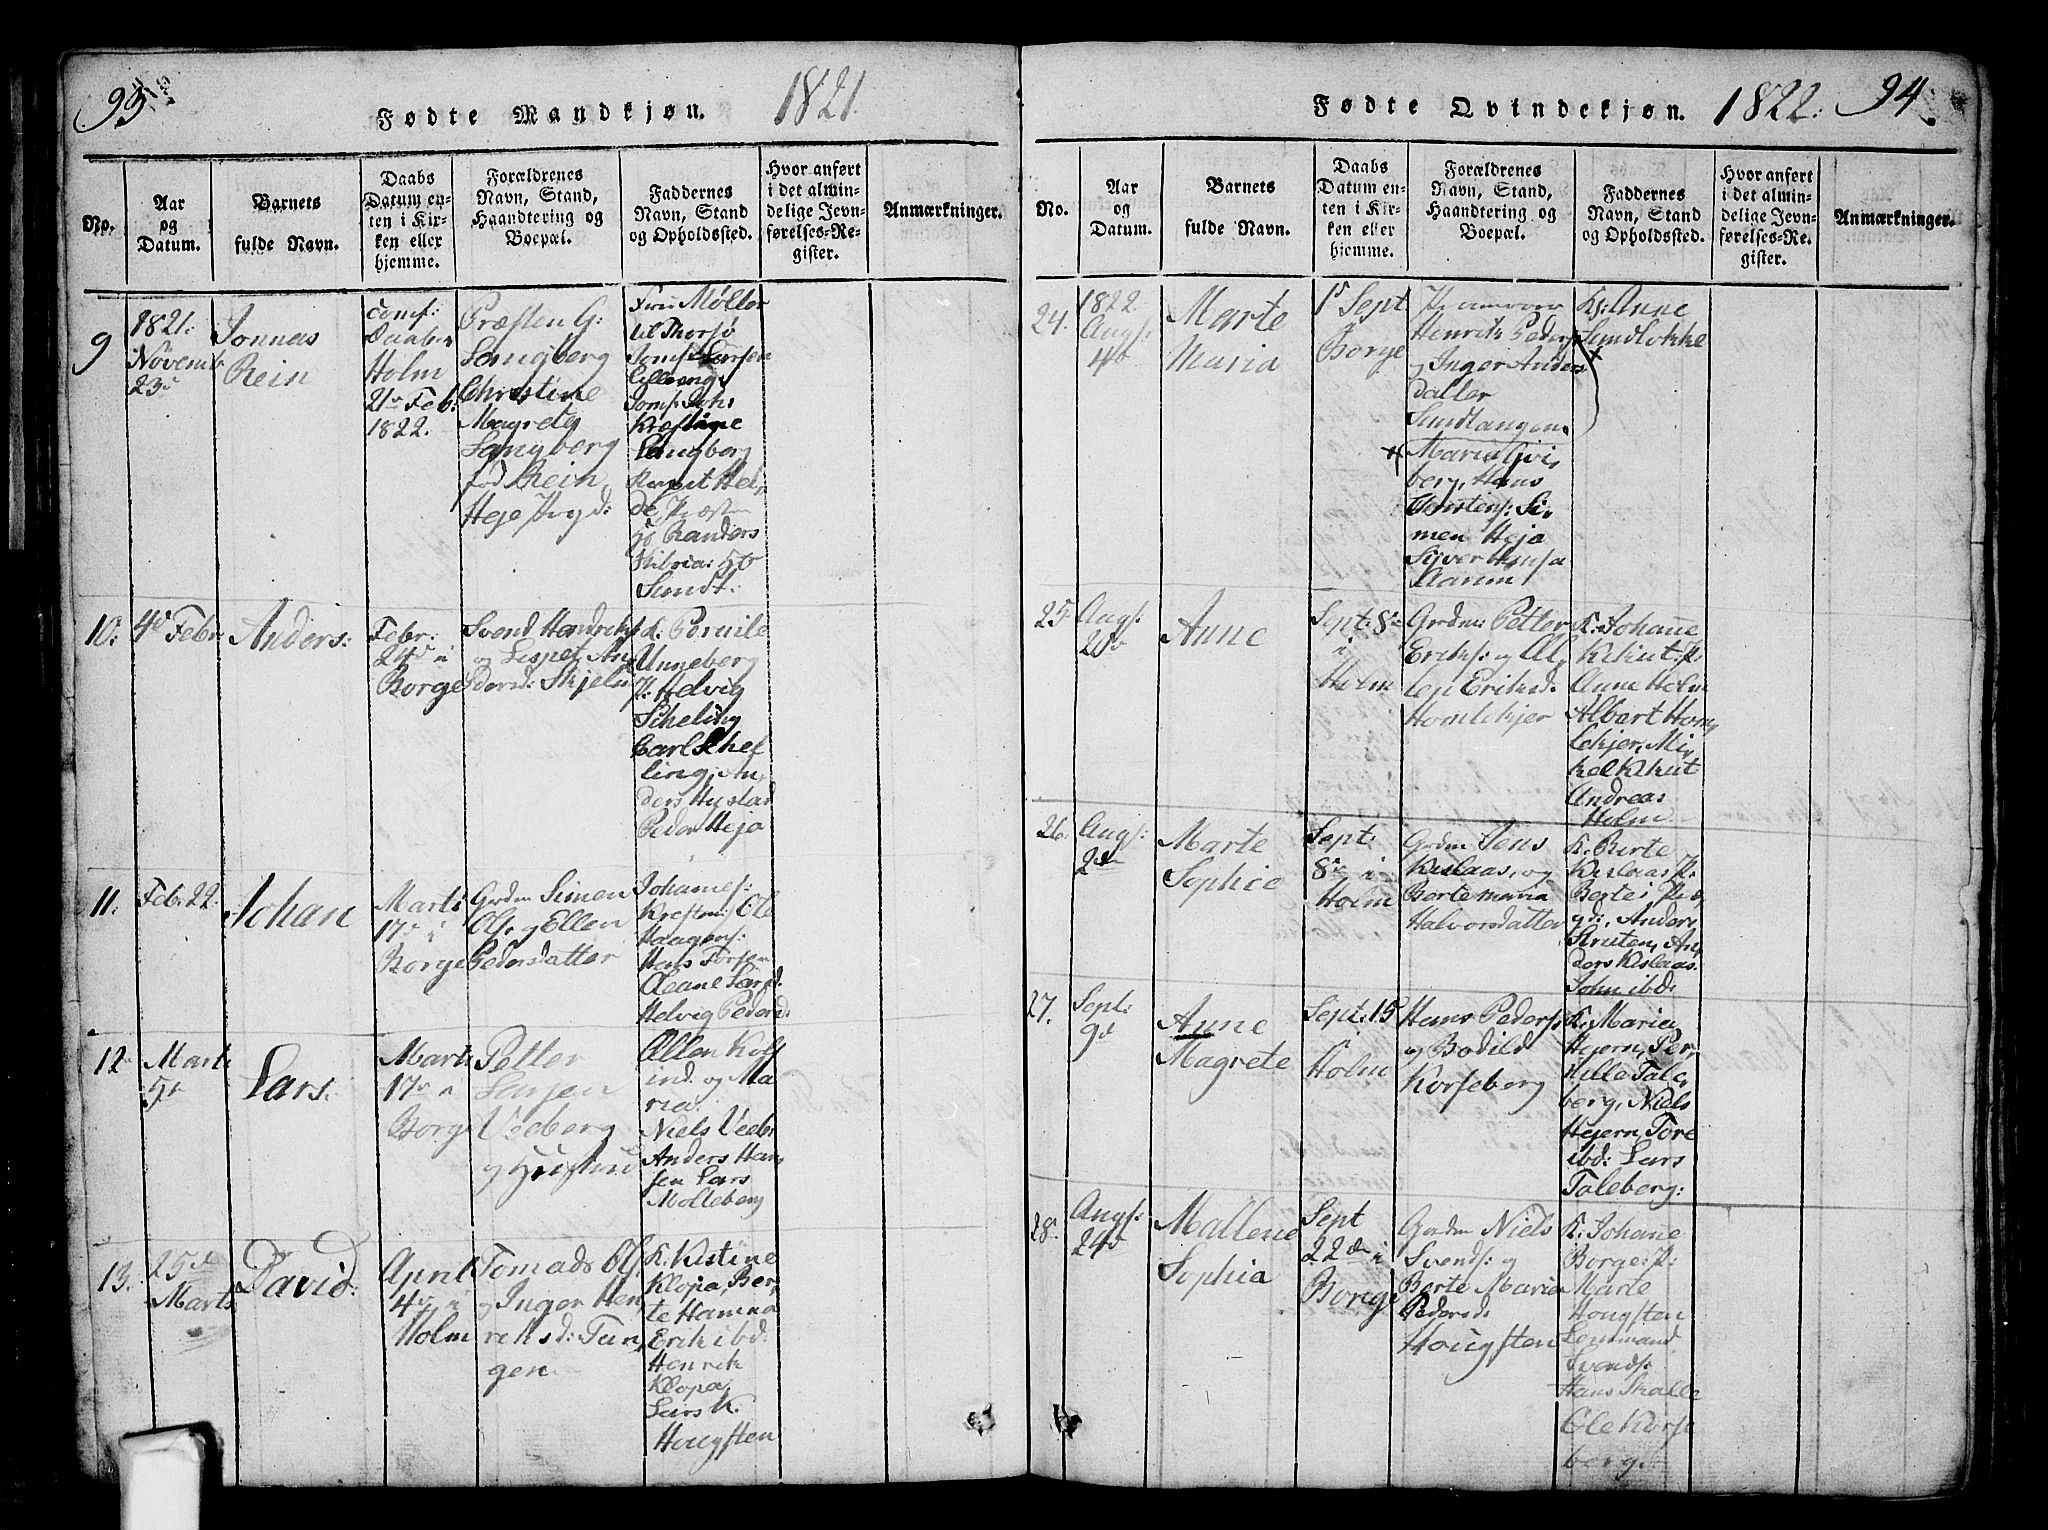 93
Fødte Mandkjøn. 1821.
No.
Aar
og
Datum.
Barnets
fulde Navn.
Daabs
Datum en-
ten i Kir-
ken eller
hjemme.
Forældrenes
Navn, Stand,
Haandtering og
Boepæl.
Faddernes
Navn, Stand
og Opholdssted.
Hvor anført
i det almin-
delige Jevn-
førelses-Re-
gister.
Anmærkninger.
9
1821:
Novemb
23
Jonnas
Rein
Conf:
Daaben
Holm
21 Feb:
1822.
Præsten G:
Langberg
Christine
Magrete
Langberg
fød Rein
Heje
Møller
til Thorsø
Krestine
Langberg
Randers
Sundt.
10:
4 Febr
Anders:
Febr:
24 i
Borge
Svend
og Lispet An,
K: Pernile
Unneberg
P: Helvig
Scheling
Carl Schel
ling, An,
ders Hystad
Peder Heja
11.
Feb: 22.
Johan
Marti
17 i
Borge
Grdm Simen
Ols: og Ellen
Pedersdatter
Ole
Haagens:
Hans Torsen
Helvig Peders
12
Marti
5
Lars.
Marti
17
Borge
Petter
Larsen
Veeberg
og Hustru
og Ma
ria:
Niels Veeber
Anders Han,
sen Lars
Molleberg
13.
25
Marts
David:
April
4 i
Holm
Tomas Ols
og Inger Hen
riksd: Tun,
gen
K. Kistine
Klopa, Ber,
te Hanna
Erik ibd:
Henrik
Klopa,
Lars K.
Hougsten
Fødte Qvindekjøn. 1822. 94
No.
Aar
og
Datum.
Barnets
fulde Navn.
Daabs
Datum en-
ten i Kir-
ken eller
hjemme.
Forældrenes
Navn, Stand,
Haandtering og
Boepæl.
Faddernes
Navn, Stand
og Opholdssted.
Hvor anført
i det almin-
delige Jevn-
førelses-Re-
gister.
Anmærkninger.
24.
1822.
Augs:
4
Marte
Maria
1 Sept
Borge
Henrik Peders
og Inger Anders
datter
Sundlangen
Maria
berg, Hans
Si,
men Heja
Siver Hansen
K: Anne
Sundløkke
25
Augs:
20
Anne
Sept: 8
i
Holm
Grdm: Petter
Eriks: og El,
len Eriksd.
Homlekjer
K: Johane
Kihut: P:
Anne Holm
Albart Hom,
lekjer, Mi,
kel Kihut
Andreas
Holm
26.
Augs:
2
Marte
Sophie
Sept:
8 i
Holm
Grdm Jens
Kislaas, og
Berte maria
Halvorsdatter
K: Birte
Kislaas P:
Berte i Pr
gd:, Anders
Struten, An,
ders Kislaas.
John ibd:
27.
Sept:
9
Anne
Magrete
Sept: 15
Holm
Hans Peders
og Bodild
Korseberg
K. Maria
Hjern, Per,
nille Tale,
berg, Niels
Hjern, Tore
ibd: Lars
Taleberg:
28.
Augs:
24
Mallene
Sophia
Sept
22 i
Borge
Gardm Niels
Svends: og
Berte Maria
Pedersd.
Hougsten
K: Johane
Borge: P:
Marte
Hougsten
Lensmand
Svends:
Hans Skalle
Ole Korse
berg.